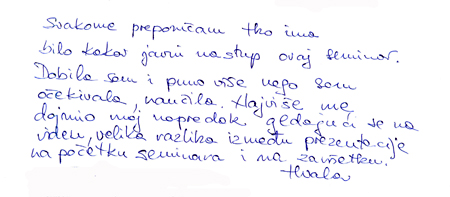 Svakome preporučam tko ima
bilo kakav javni nastup ovaj seminar.
Dobila sam i puno više nego sam
očekivala, naučila. Najviše me
dojmio moj napredak gledajući se na
videu, velika razlika između prezentacije
na početku seminara i na završetku.
Hvala